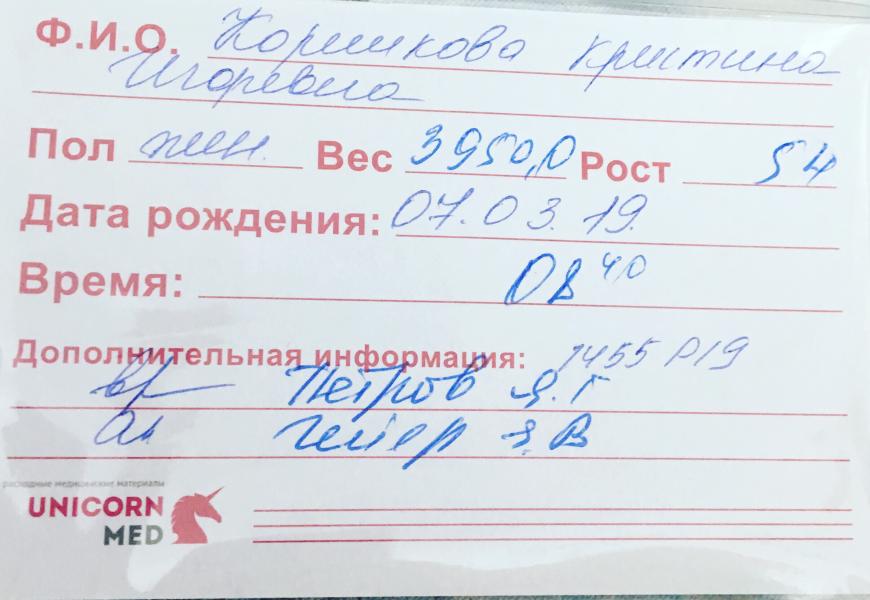 Ф.И.О. Коршикова Кристина
Игоревна
Пол жен. Вес 3950,0 Рост 54
Дата рождения: 07.03.19.
Время: 08 40
Дополнительная информация: 1455 Р19
вр Петров Я.Г
Ак З.В
расходные медицинские материалы
UNICORN
MED